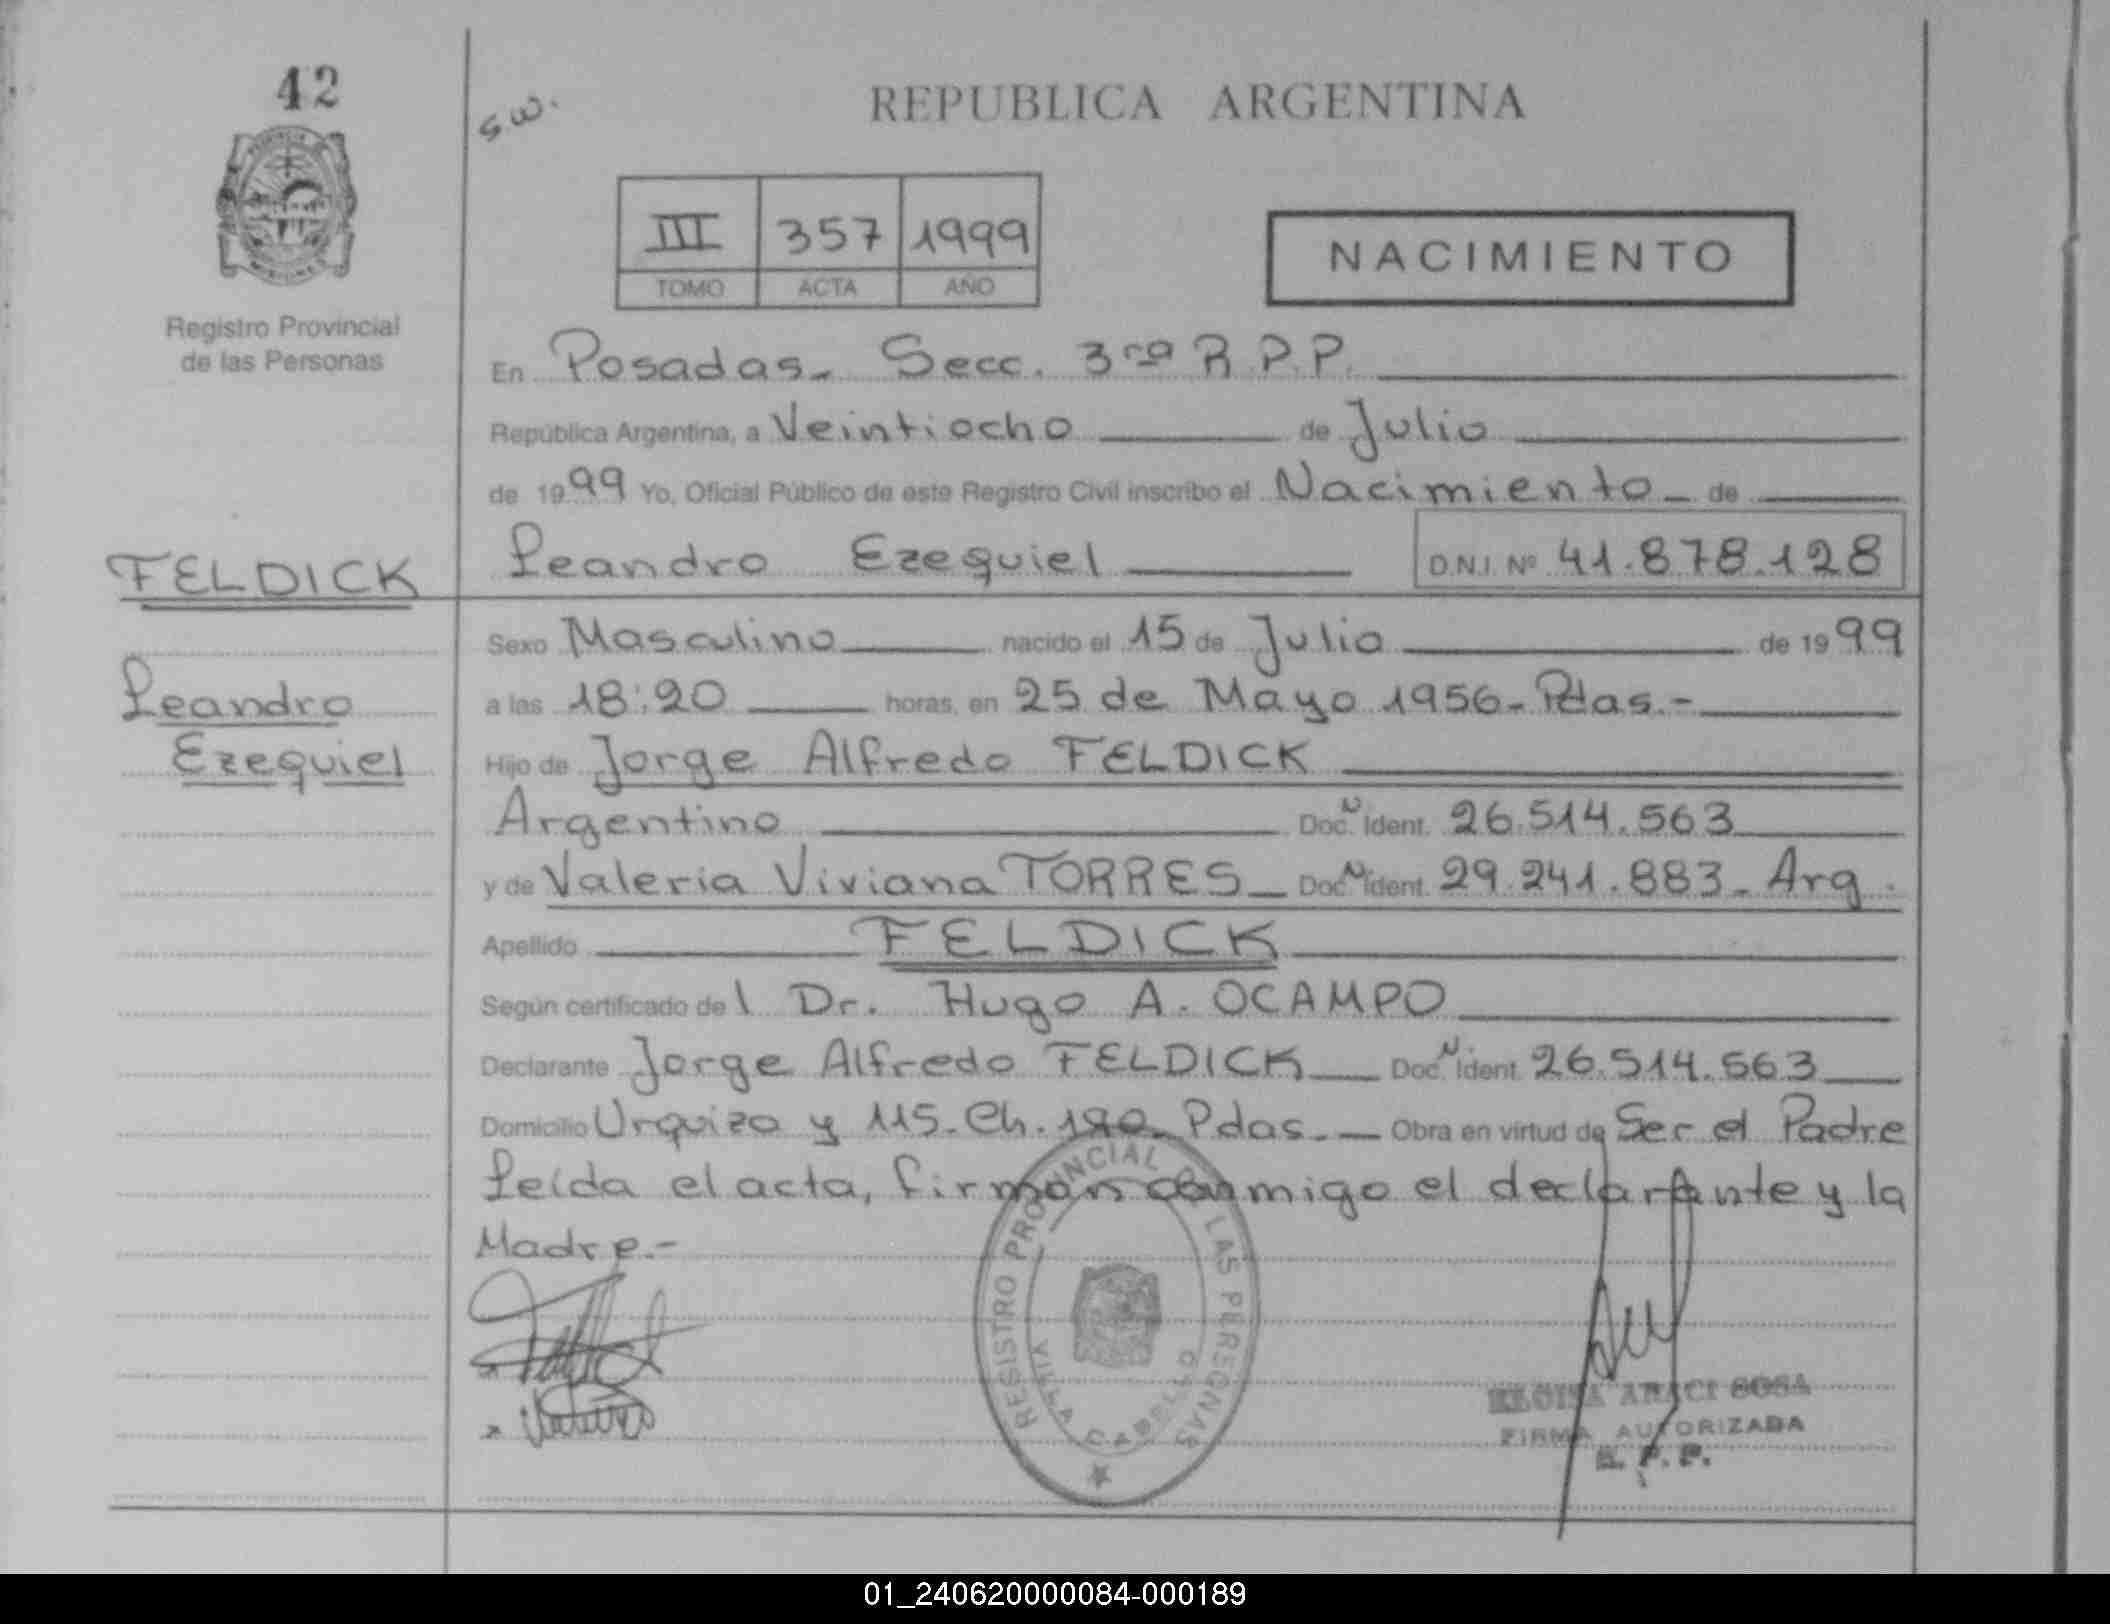 42
s.w.
REPUBLICA ARGENTINA
III 357 1999
TOMO ACTA AÑO
NACIMIENTO
Registro Provincial
de las Personas
En Posadas. Secc. 3ra R.P.P.
República Argentina, a Veintiocho de Julio
de 1999 Yo, Oficial Público de este Registro Civil inscribo el Nacimiento de
FELDICK
Leandro Ezequiel D.N.I. Nº 41.878.128
Sexo Masculino nacido el 15 de Julio de 1999
Leandro
a las 18:20 horas, en 25 de Mayo 1956 - Pdas.-
Ezequiel
Hijo de Jorge Alfredo FELDICK
Argentino Doc. N Ident. 26.514.563
y de Valeria Viviana TORRES Doc. N Ident. 29.241.883 - Arg.
Apellido FELDICK
Según certificado del Dr. Hugo A. OCAMPO
Declarante Jorge Alfredo FELDICK Doc. N Ident. 26.514.563
Domicilio Urquiza y 115. Ch. 190. Pdas. Obra en virtud de Ser el Padre
Leída el acta, firman conmigo el declarante y la
Madre.-
REGISTRO PROVINCIAL DE LAS PERSONAS
ELOISA ARACI SOSA
FIRMA AUTORIZADA
R. P. P.
01_240620000084-000189